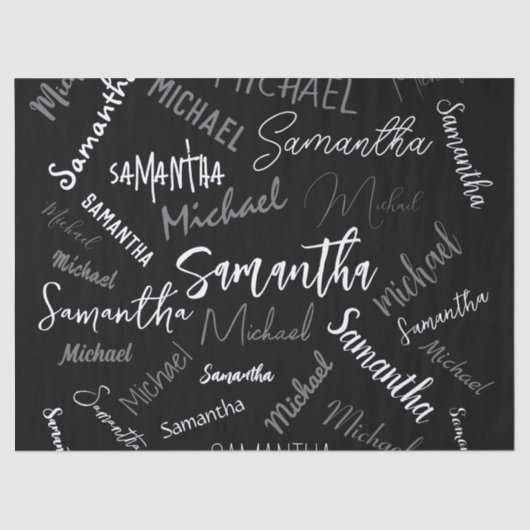 Michael
Samantha
MICHAEL
MICHAEL
Michael
Samantha
Samantha
SAMANTHA
Michael
Michael
SAMANTHA
Michael
Michael
Samantha
Michael
Samantha
Michael
Samantha
Samantha
Michael
Michael
Michael
Samantha
Michael
Samantha
Samantha
Samantha
Michael
Samantha
Samantha
Michael
SAMANTHA